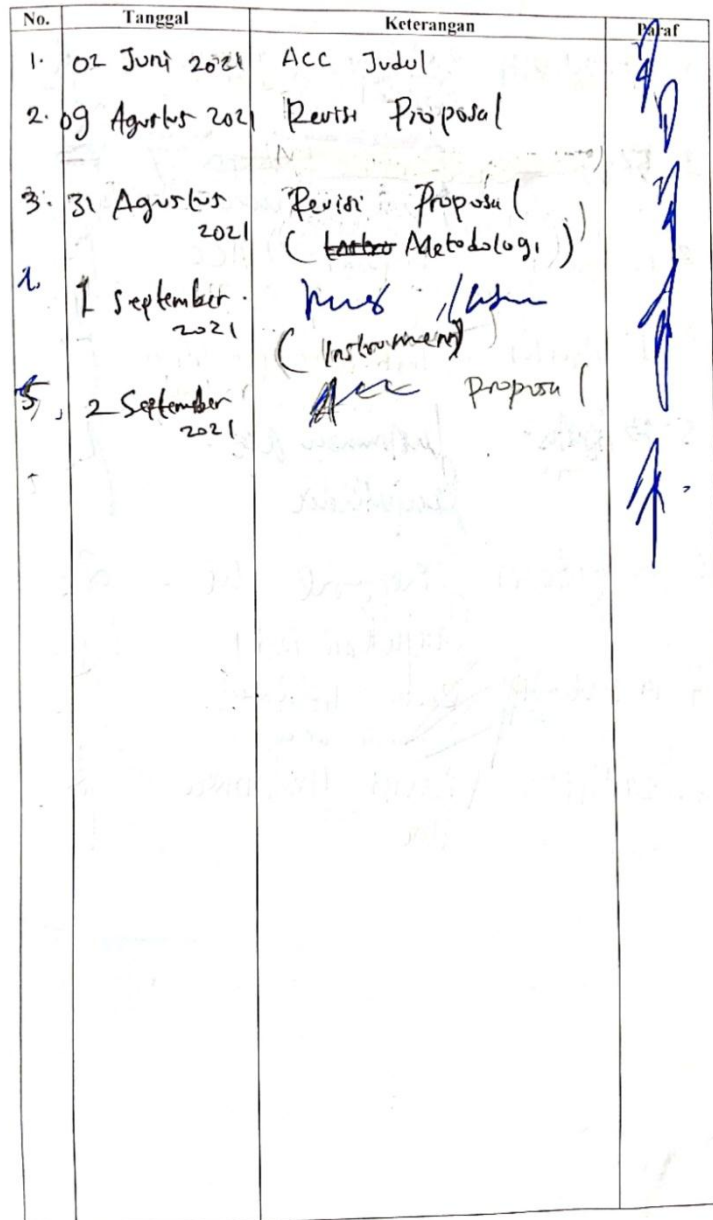 No. Tanggal Keterangan Paraf
1. 02 Juni 2021 Acc Judul
2. 09 Agustus 2021 Revisi Proposal
3. 31 Agustus Revisi Proposal
2021 (Metodologi)
1 September
2021 (Instrumen)
5. 2 September Acc Proposal
2021